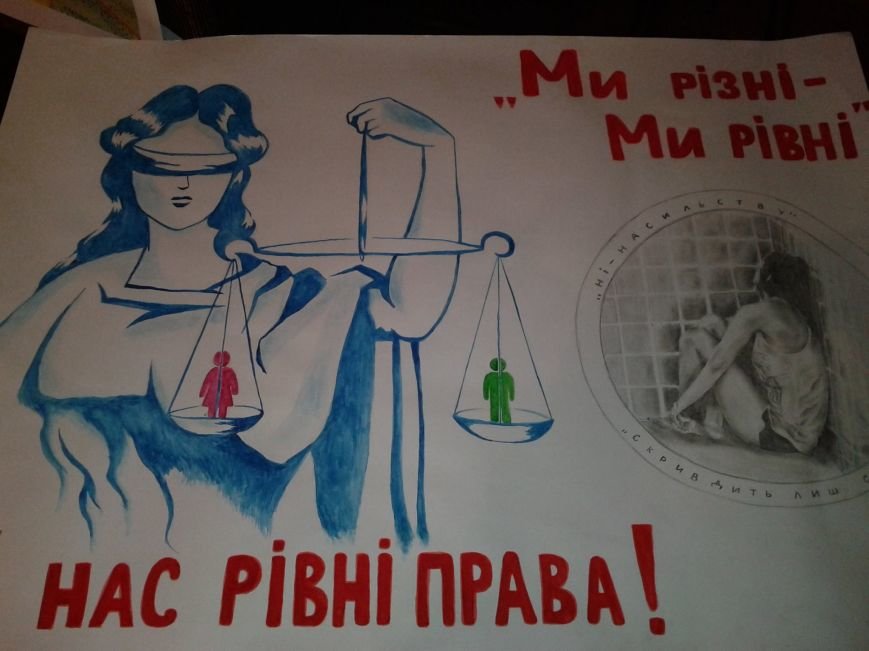 „Ми різні-
Ми рівні"
„Ні-насильству"
„Скривдить лиш
нас рівні права!